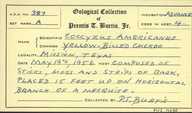 Oological Collection
of
Prentis T. Burtis, Jr.
A.O.U. NO. 387
SET MARK A
INCUBATION ADVANCE
EGGS IN SET 4
SCIENTIFIC NAME COCCYZUS AMERICANUS
COMMON NAME YELLOW-BILLED CUCKOO
LOCALITY MISSION, TEXAS
DATE MAY 18th, 1952 NEST COMPOSED OF
STICKS, MOSS AND STRIPS OF BARK,
PLACED 15 FEET UP ON HORIZONTAL
BRANCH OF A MESQUITE.
COLLECTED BY P.T. BURTIS